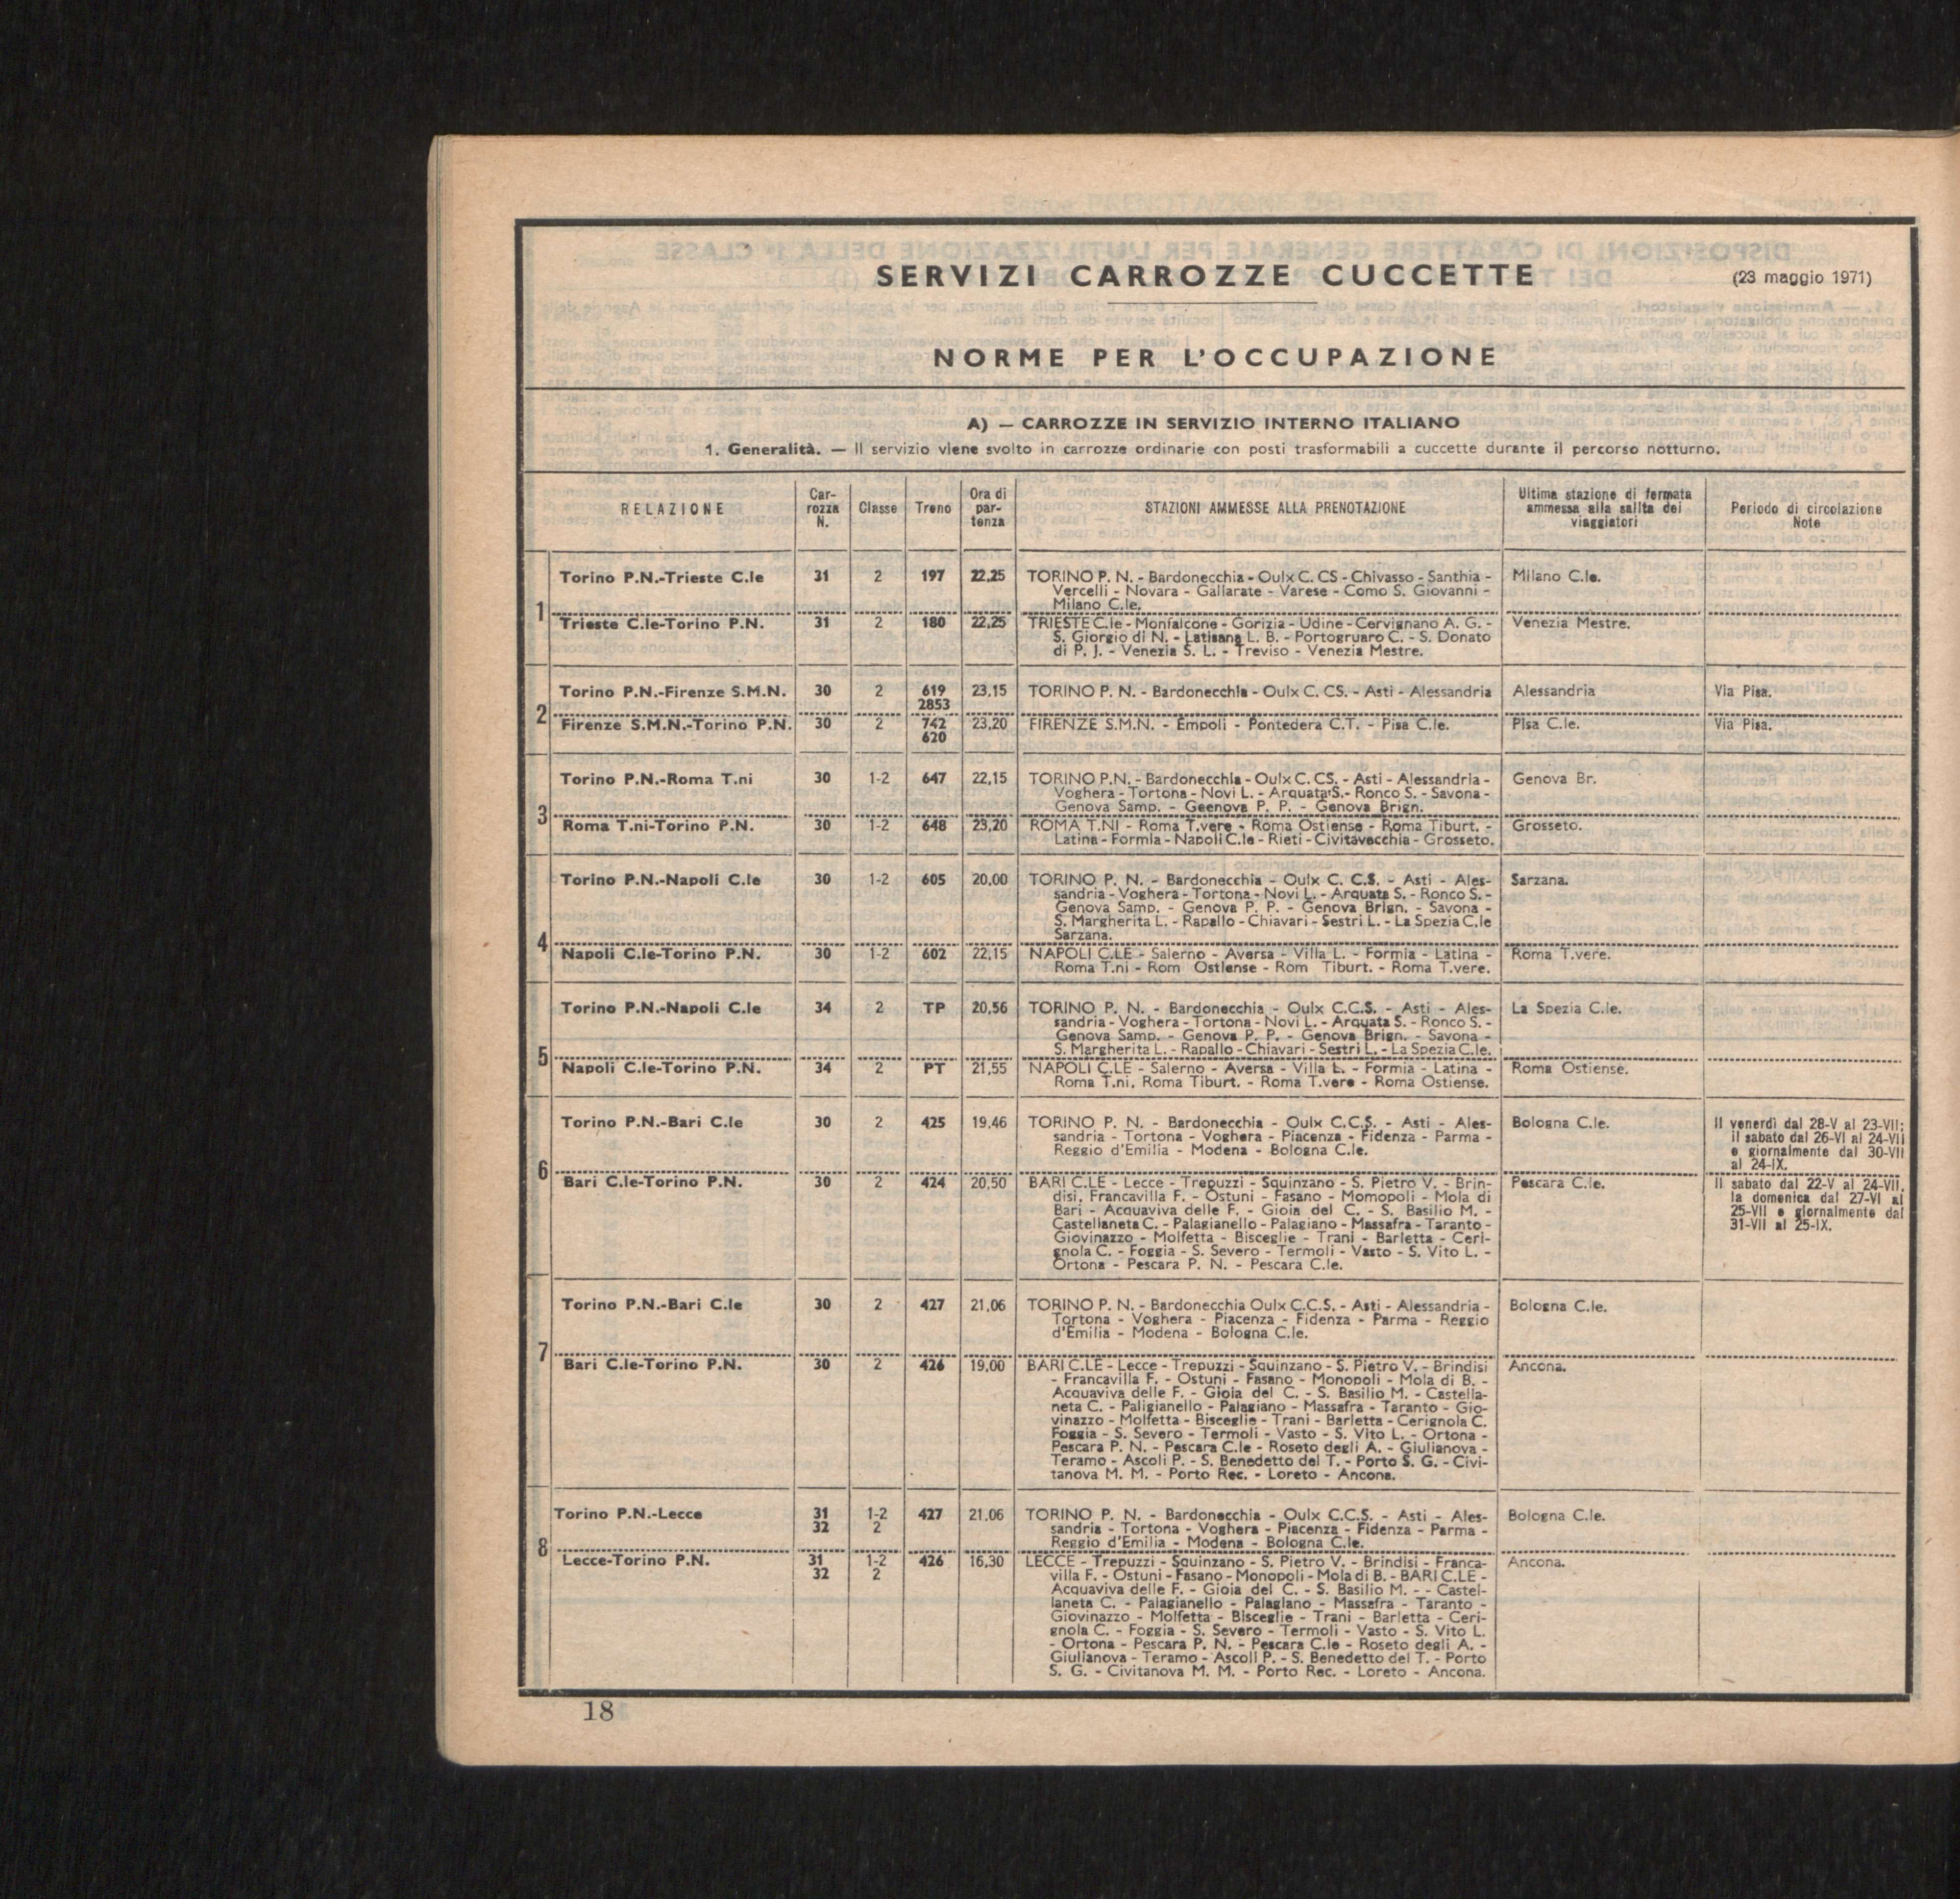 SERVIZI CARROZZE CUCCETTE
(23 maggio 1971)
NORME PER L'OCCUPAZIONE
A) — CARROZZE IN SERVIZIO INTERNO ITALIANO
1. Generalità. — Il servizio viene svolto in carrozze ordinarie con posti trasformabili a cuccette durante il percorso notturno.
RELAZIONE
Car-
rozza
N.
Classe
Treno
Ora di
par-
tenza
STAZIONI AMMESSE ALLA PRENOTAZIONE
Ultima stazione di fermata
ammessa alla salita dei
viaggiatori
Periodo di circolazione
Note
1
Torino P.N.-Trieste C.le 31 2 197 22,25 TORINO P. N. - Bardonecchia - Oulx C. CS - Chivasso - Santhia - Milano C.le.
Vercelli - Novara - Gallarate - Varese - Como S. Giovanni -
Milano C.le.
Trieste C.le-Torino P.N. 31 2 180 22,25 TRIESTE C.le - Monfalcone - Gorizia - Udine - Cervignano A. G. - Venezia Mestre.
S. Giorgio di N. - Latisana L. B. - Portogruaro C. - S. Donato
di P. J. - Venezia S. L. - Treviso - Venezia Mestre.
2
Torino P.N.-Firenze S.M.N. 30 2 619 23,15 TORINO P. N. - Bardonecchia - Oulx C. CS. - Asti - Alessandria Alessandria Via Pisa.
2853
Firenze S.M.N.-Torino P.N. 30 2 742 23,20 FIRENZE S.M.N. - Empoli - Pontedera C.T. - Pisa C.le. Pisa C.le. Via Pisa.
620
3
Torino P.N.-Roma T.ni 30 1-2 647 22,15 TORINO P.N. - Bardonecchia - Oulx C. CS. - Asti - Alessandria - Genova Br.
Voghera - Tortona - Novi L. - Arquata S. - Ronco S. - Savona -
Genova Samp. - Geenova P. P. - Genova Brign.
Roma T.ni-Torino P.N. 30 1-2 648 23,20 ROMA T.NI - Roma T.vere - Roma Ostiense - Roma Tiburt. - Grosseto.
Latina - Formia - Napoli C.le - Rieti - Civitavecchia - Grosseto.
4
Torino P.N.-Napoli C.le 30 1-2 605 20,00 TORINO P. N. - Bardonecchia - Oulx C. C.S. - Asti - Ales- Sarzana.
sandria - Voghera - Tortona - Novi L. - Arquata S. - Ronco S. -
Genova Samp. - Genova P. P. - Genova Brign. - Savona -
S. Margherita L. - Rapallo - Chiavari - Sestri L. - La Spezia C.le
Sarzana.
Napoli C.le-Torino P.N. 30 1-2 602 22,15 NAPOLI C.LE - Salerno - Aversa - Villa L. - Formia - Latina - Roma T.vere.
Roma T.ni - Rom Ostiense - Rom Tiburt. - Roma T.vere.
5
Torino P.N.-Napoli C.le 34 2 TP 20,56 TORINO P. N. - Bardonecchia - Oulx C.C.S. - Asti - Ales- La Spezia C.le.
sandria - Voghera - Tortona - Novi L. - Arquata S. - Ronco S. -
Genova Samp. - Genova P. P. - Genova Brign. - Savona -
S. Margherita L. - Rapallo - Chiavari - Sestri L. - La Spezia C.le.
Napoli C.le-Torino P.N. 34 2 PT 21,55 NAPOLI C.LE - Salerno - Aversa - Villa L. - Formia - Latina - Roma Ostiense.
Roma T.ni, Roma Tiburt. - Roma T.vere - Roma Ostiense.
6
Torino P.N.-Bari C.le 30 2 425 19,46 TORINO P. N. - Bardonecchia - Oulx C.C.S. - Asti - Ales- Bologna C.le. Il venerdì dal 28-V al 23-VII;
sandria - Tortona - Voghera - Piacenza - Fidenza - Parma - il sabato dal 26-VI al 24-VII
Reggio d'Emilia - Modena - Bologna C.le. e giornalmente dal 30-VII
al 24-IX.
Bari C.le-Torino P.N. 30 2 424 20,50 BARI C.LE - Lecce - Trepuzzi - Squinzano - S. Pietro V. - Brin- Pescara C.le. Il sabato dal 22-V al 24-VII,
disi, Francavilla F. - Ostuni - Fasano - Momopoli - Mola di la domenica dal 27-VI al
Bari - Acquaviva delle F. - Gioia del C. - S. Basilio M. - 25-VII e giornalmente dal
Castellaneta C. - Palagianello - Palagiano - Massafra - Taranto - 31-VII al 25-IX.
Giovinazzo - Molfetta - Bisceglie - Trani - Barletta - Ceri-
gnola C. - Foggia - S. Severo - Termoli - Vasto - S. Vito L. -
Ortona - Pescara P. N. - Pescara C.le.
7
Torino P.N.-Bari C.le 30 2 427 21,06 TORINO P. N. - Bardonecchia Oulx C.C.S. - Asti - Alessandria - Bologna C.le.
Tortona - Voghera - Piacenza - Fidenza - Parma - Reggio
d'Emilia - Modena - Bologna C.le.
Bari C.le-Torino P.N. 30 2 426 19,00 BARI C.LE - Lecce - Trepuzzi - Squinzano - S. Pietro V. - Brindisi Ancona.
- Francavilla F. - Ostuni - Fasano - Monopoli - Mola di B. -
Acquaviva delle F. - Gioia del C. - S. Basilio M. - Castella-
neta C. - Paligianello - Palagiano - Massafra - Taranto - Gio-
vinazzo - Molfetta - Bisceglie - Trani - Barletta - Cerignola C.
Foggia - S. Severo - Termoli - Vasto - S. Vito L. - Ortona -
Pescara P. N. - Pescara C.le - Roseto degli A. - Giulianova -
Teramo - Ascoli P. - S. Benedetto del T. - Porto S. G. - Civi-
tanova M. M. - Porto Rec. - Loreto - Ancona.
8
Torino P.N.-Lecce 31 1-2 427 21,06 TORINO P. N. - Bardonecchia - Oulx C.C.S. - Asti - Ales- Bologna C.le.
32 2 sandria - Tortona - Voghera - Piacenza - Fidenza - Parma -
Reggio d'Emilia - Modena - Bologna C.le.
Lecce-Torino P.N. 31 1-2 426 16,30 LECCE - Trepuzzi - Squinzano - S. Pietro V. - Brindisi - Franca- Ancona.
32 2 villa F. - Ostuni - Fasano - Monopoli - Mola di B. - BARI C.LE -
Acquaviva delle F. - Gioia del C. - S. Basilio M. - - Castel-
laneta C. - Palagianello - Palagiano - Massafra - Taranto -
Giovinazzo - Molfetta - Bisceglie - Trani - Barletta - Ceri-
gnola C. - Foggia - S. Severo - Termoli - Vasto - S. Vito L.
- Ortona - Pescara P. N. - Pescara C.le - Roseto degli A. -
Giulianova - Teramo - Ascoli P. - S. Benedetto del T. - Porto
S. G. - Civitanova M. M. - Porto Rec. - Loreto - Ancona.
18